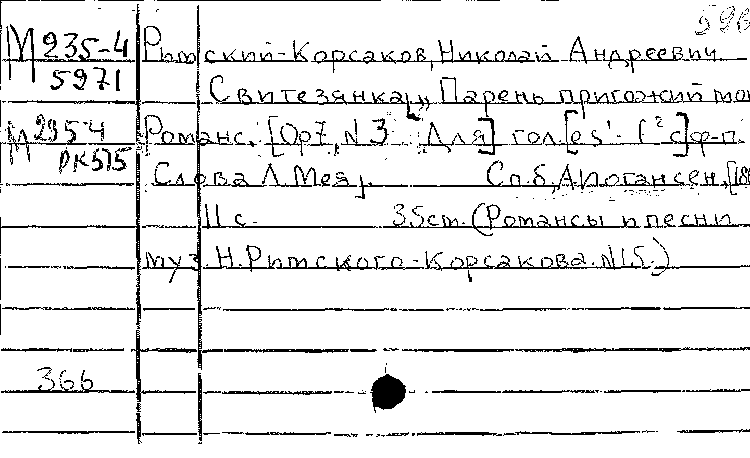 596
М 235-4 Римский-Корсаков, Николай Андреевич
5971
Свитезянка [„ Парень пригожий
М 235-4 Романс. [Op7, N 3 Для] гол. [es¹- f²] ф-п.
РК575
Слова Л. Мея]. Сп.б, А. Иогансен, [18
11 с. 35 cm. (Романсы и песни
муз. Н. Римского-Корсакова. N15.)
366